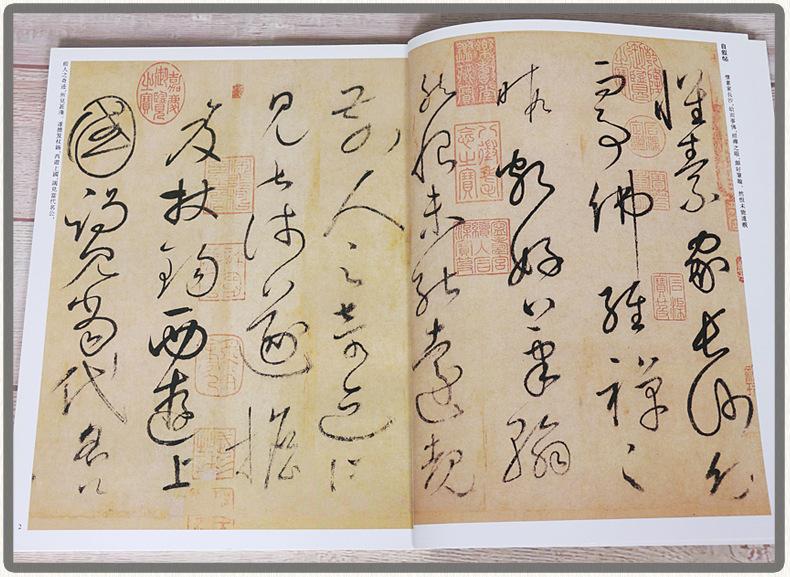 自叙帖
懷素家長沙，幼而事佛，經禪之暇，頗好筆翰。然恨未能遠覩
懷素家長沙幼
而事佛經禪之
暇頗好筆翰
然恨未能遠覩
八徵耄念之寶
前人之奇迹所
見甚淺遂擔
笈杖錫西遊上
國謁見當代名公
嘉慶御覽之寶
前人之奇迹，所見甚淺。遂擔笈杖錫，西遊上國，謁見當代名公。
2